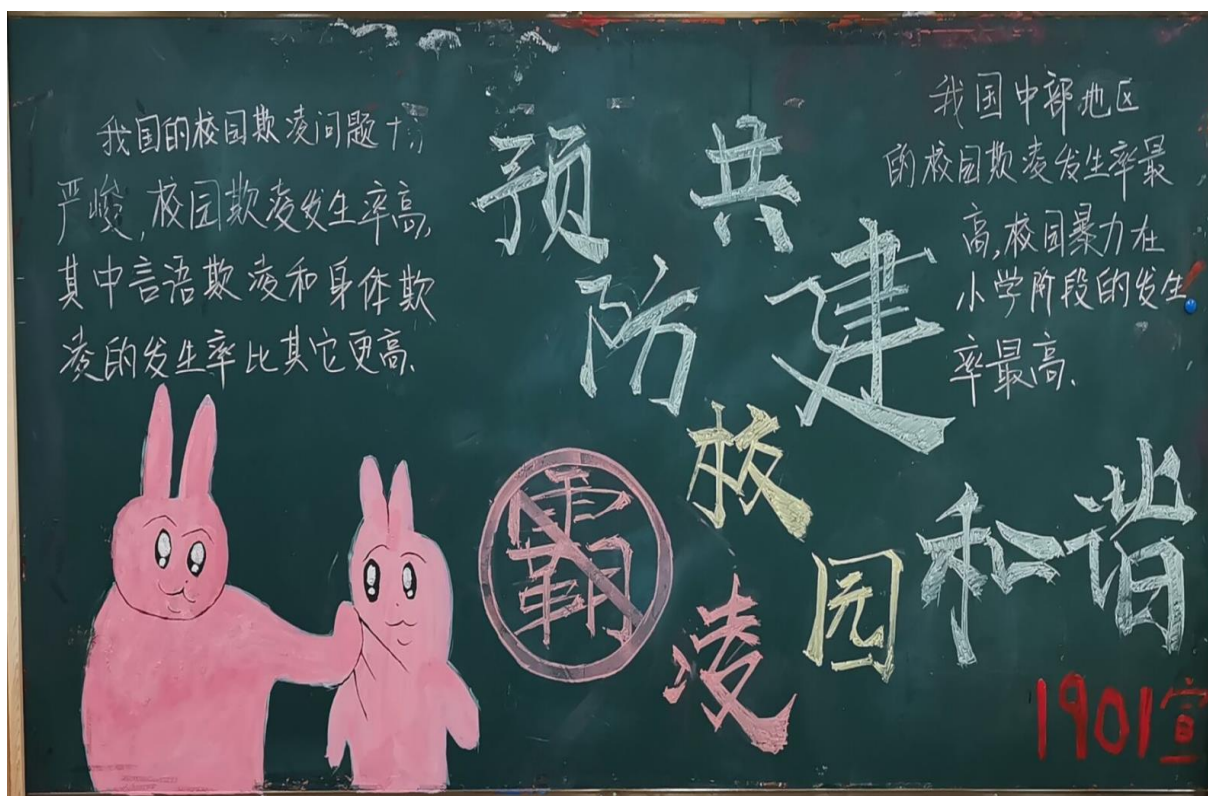 我国的校园欺凌问题十分
严峻,校园欺凌发生率高,
其中言语欺凌和身体欺
凌的发生率比其它更高.
预防
霸凌
共建
校园
和谐
我国中部地区
的校园欺凌发生率最
高,校园暴力在
小学阶段的发生
率最高.
1901宣